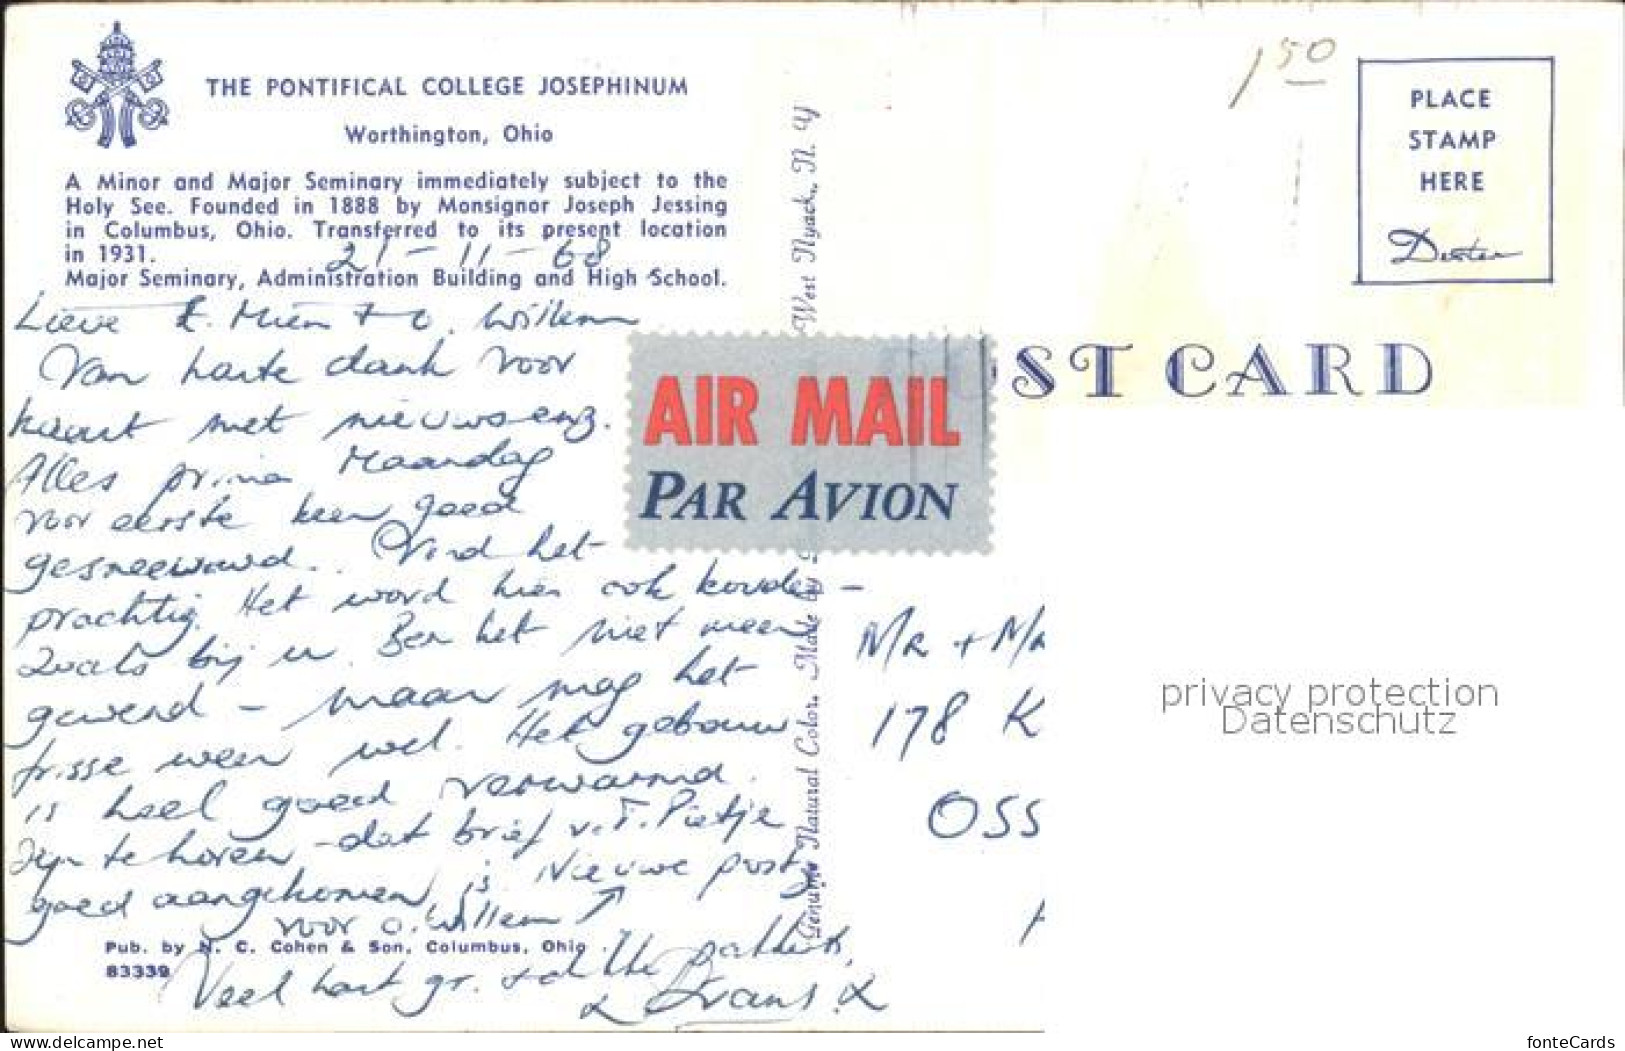 THE PONTIFICAL COLLEGE JOSEPHINUM
Worthington, Ohio
A Minor and Major Seminary immediately subject to the
Holy See. Founded in 1888 by Monsignor Joseph Jessing
in Columbus, Ohio. Transferred to its present location
in 1931.
Major Seminary, Administration Building and High School.
21-11-68
Lieve t. Mien + o. Willem
Van harte dank voor
kaart met nieuws enz.
Alles prima Maandag
voor eerste keer goed
gesneeuwd. Vind het
prachtig. Het word hier ook kouder -
zoals bij u. Ben het niet meer
gewend - maar mag het
frisse weer wel. Het gebouw
is heel goed verwarmd.
te horen - dat brief v. T. Pietje
goed aangekomen is Nieuwe post
voor o. Willem
Pub. by N. C. Cohen & Son, Columbus, Ohio
83339
Veel hart gr.
Genuine Natural Color. Made by West Nyack, N. Y
AIR MAIL
PAR AVION
150
PLACE
STAMP
HERE
Dexter
ST CARD
Mr + M
178 K
OSS
privacy protection
Datenschutz
www.delcampe.net
fonteCards